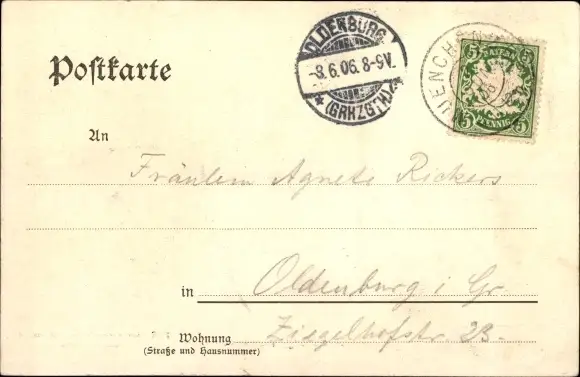 OLDENBURG
-8.6.06.8-9V.
*(GRHZGTH.)*
MUENCHEN
5 BAYERN 5
5 PFENNIG 5
Postkarte
An
Fräulein Agnete Rickers
in Oldenburg i Gr.
Wohnung Ziegelhofstr. 23.
(Straße und Hausnummer)